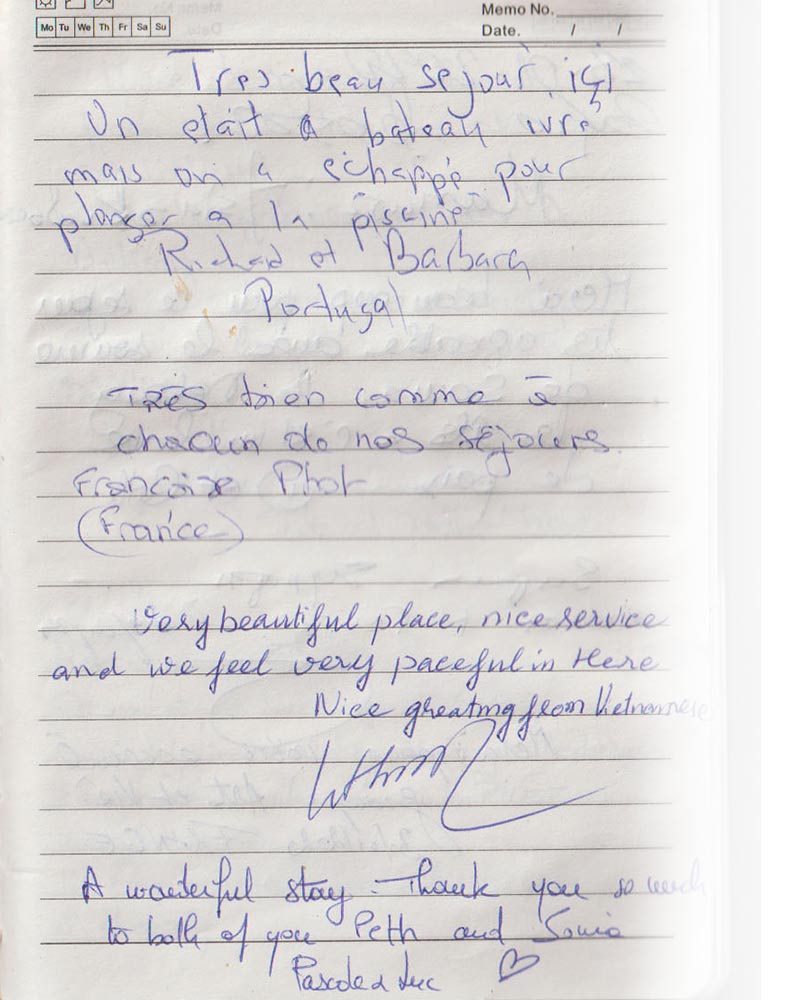 Memo No.
Mo Tu We Th Fr Sa Su
Date. / /
Tres beau sejour içi
Un etait a bateau ivre
mais on a echappé pour
planger a la piscine
Richard et Barbara
Portugal
TRÈS bien comme à
chacun de nos séjours.
Françoise
(France)
Very beautiful place, nice service
and we feel very paceful in Here
Nice greating from Vietnamese
A wonderful stay. Thank you so much
to both of you Peth and Sonia
Pascale & Luc